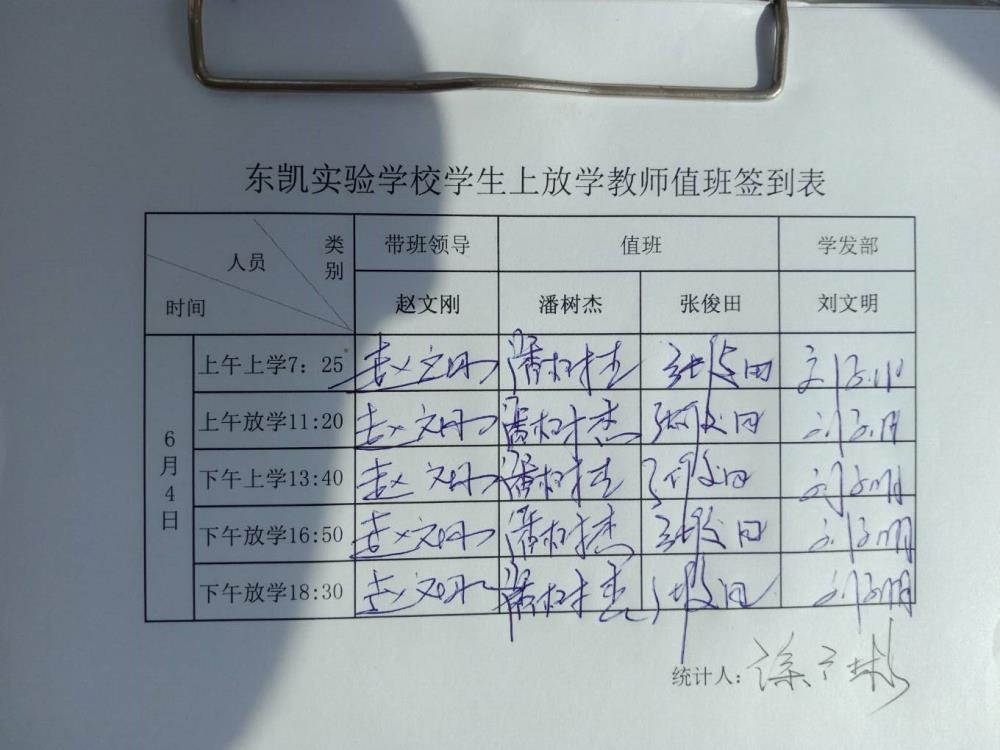 东凯实验学校学生上放学教师值班签到表
人员 类别 时间 带班领导 值班 学发部
赵文刚 潘树杰 张俊田 刘文明
6月4日
上午上学7：25 赵文刚 潘树杰 张俊田 刘文明
上午放学11:20 赵文刚 潘树杰 张俊田 刘文明
下午上学13:40 赵文刚 潘树杰 张俊田 刘文明
下午放学16:50 赵文刚 潘树杰 张俊田 刘文明
下午放学18:30 赵文刚 潘树杰 张俊田 刘文明
统计人：